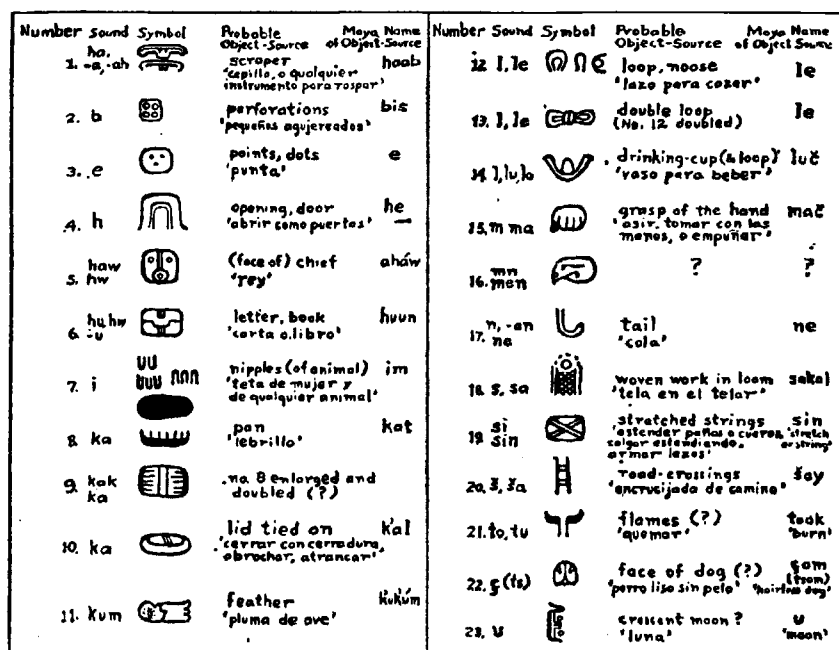 Number Sound Symbol Probable Object-Source Maya Name of Object-Source
ha,
1. -a, -ah scraper haab
'cepillo, o qualquier
instrumento para rospar'
2. b perforations bis
'pequeños agujereados'
3. e points, dots e
'punta'
4. h opening, door he
'abrir como puertas'
5. haw (face of) chief aháw
hw 'rey'
6. hu, hw letter, book huun
:u 'carta o libro'
7. i nipples (of animal) im
'teta de mujer y
de qualquier animal'
8. ka pan kat
'lebrillo'
9. kak no. 8 enlarged and
ka doubled (?)
10. ka lid tied on k'al
'cerrar con cerradura,
abrochar, atrancar'
11. kum feather k'uk'úm
'pluma de ave'
Number Sound Symbol Probable Object-Source Maya Name of Object Source
12 l, le loop, noose le
'lazo para cazar'
13. l, le double loop le
(No. 12 doubled)
14. l, lu, lo drinking-cup (& loop) luč
'vaso para beber'
15. m ma grasp of the hand mač
'asir, tomar con las
manos, o empuñar'
16. mn ? ?
men
17. n, -an tail ne
na 'cola'
18. s, sa woven work in loom sakal
'tela en el telar'
19. si stretched strings sin
sin 'estender paños o cueros, 'stretch
colgar estendiendo, or string'
armar lazos'
20. š, ša road-crossings šay
'encrucijada de camino'
21. to, tu flames (?) took
'quemar' 'burn'
22. ç (ts) face of dog (?) çom
'perro liso sin pelo' (tsom)
'hairless dog'
23. u crescent moon ? u
'luna' 'moon'